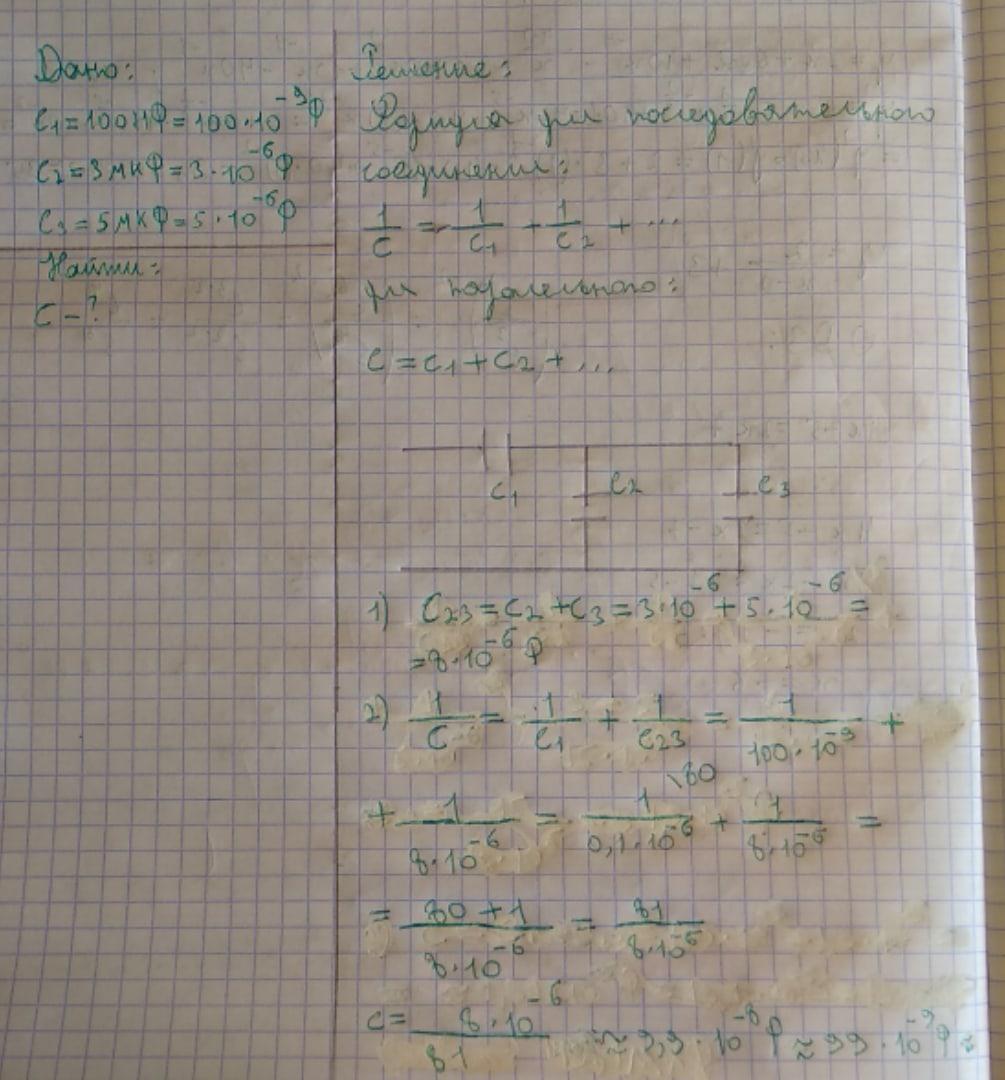 Дано:
C₁=100нФ=100·10⁻⁹Ф
C₂=3мкФ=3·10⁻⁶Ф
C₃=5мкФ=5·10⁻⁶Ф
Найти:
C-?
Решение:
Формула для последовательного
соединения:
1/C = 1/C₁ + 1/C₂ + ...
для паралельного:
C=C₁+C₂+...
C₁ C₂ C₃
1) C₂₃=C₂+C₃=3·10⁻⁶+5·10⁻⁶=
=8·10⁻⁶Ф
2) 1/C = 1/C₁ + 1/C₂₃ = 1/(100·10⁻⁹) +
+ 1/(8·10⁻⁶) = 1\80/(0,1·10⁻⁶) + 1/(8·10⁻⁶) =
= (80+1)/(8·10⁻⁶) = 81/(8·10⁻⁶)
C= 8·10⁻⁶/81 ≈ 9,9·10⁻⁸Ф ≈ 99·10⁻⁹Ф ≈